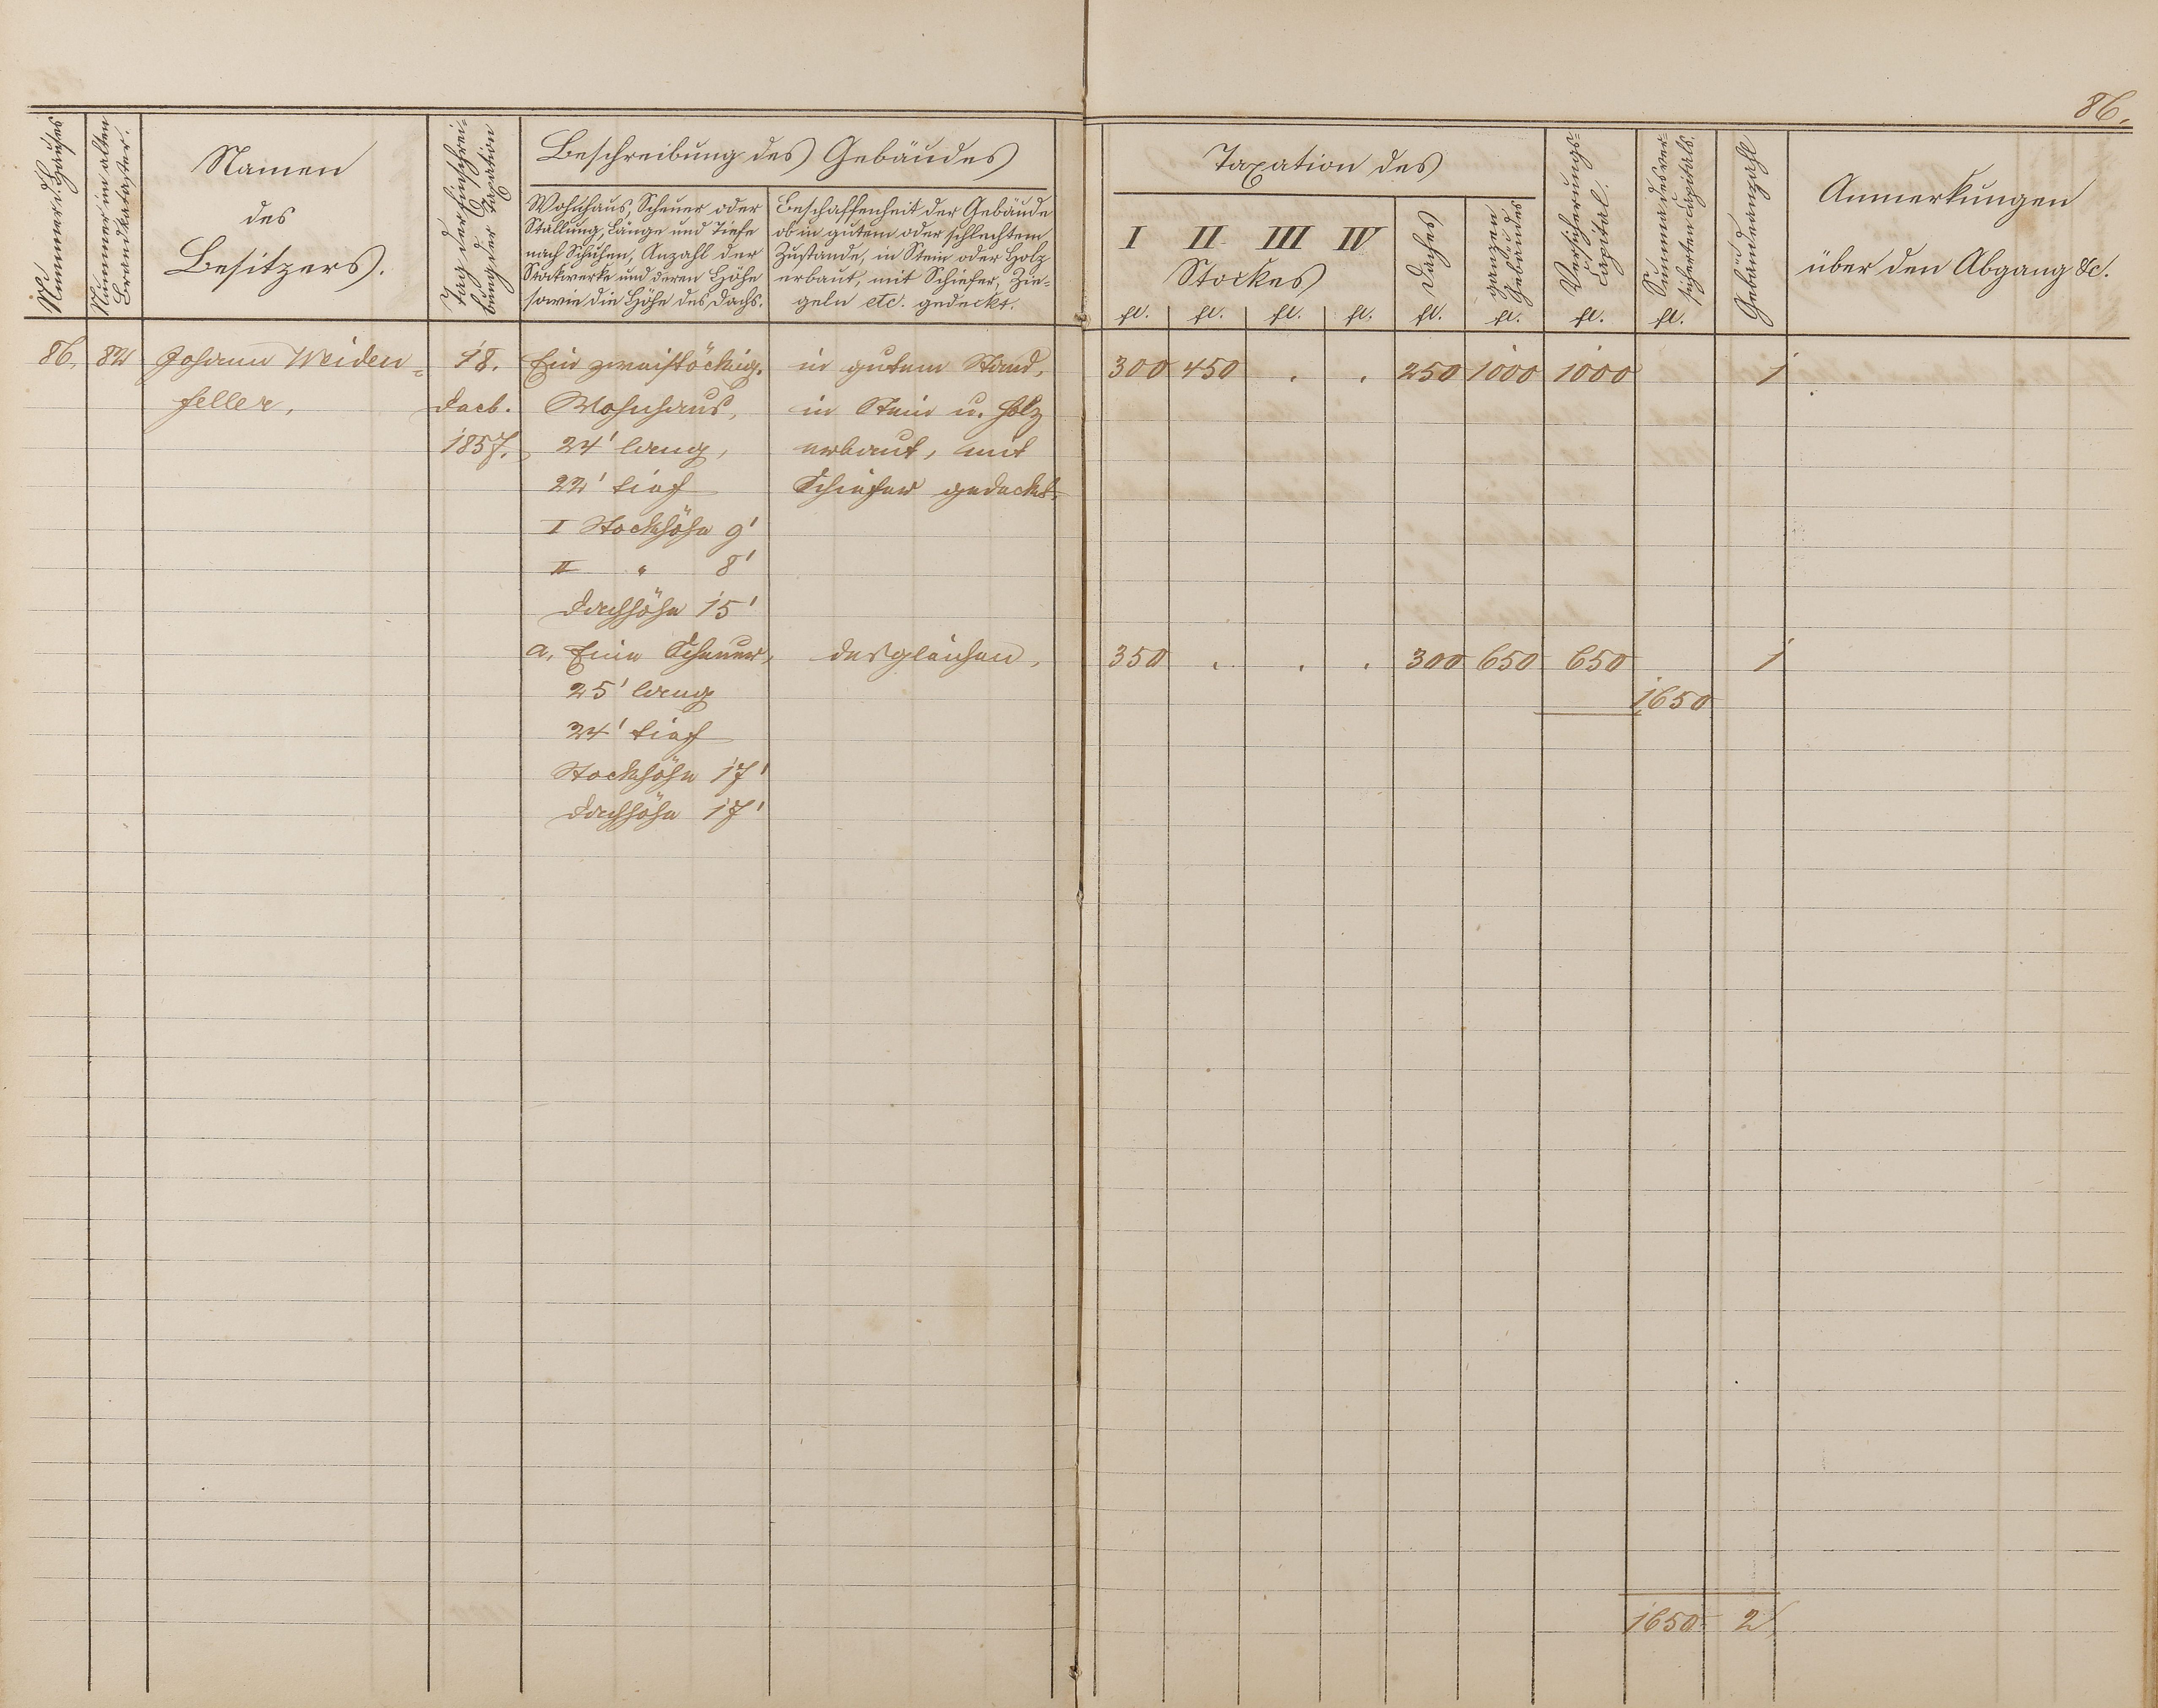 86.
Nummer d. Hauses
Nummer im alten
Brandkataster.
Namen
des
Besitzers.
Tag der Einschrei-
bung der Taxation
Beschreibung des Gebäudes
Wohnhaus, Scheuer oder
Stallung, Länge und Tiefe
nach Schuhen, Anzahl der
Stockwerke und deren Höhe
sowie die Höhe des Dachs.
Beschaffenheit der Gebäude
ob in gutem oder schlechtem
Zustande, in Stein oder Holz
erbaut, mit Schiefer, Zie-
geln etc. gedeckt.
Taxation des
I II III IV
Stockes
Daches
ganzen
Gebäudes
Versicherungs-
Capital.
Summa des ver-
sicherten Capitals.
Gebäudeanzahl
Anmerkungen
über den Abgang &c.
fl. fl. fl. fl. fl. fl. fl. fl.
86. 82 Johann Weiden- 18. Ein zweistöckig. in gutem Stand, 300 450 . . 250 1000 1000 1
feller, Decb. Wohnhaus, in Stein u. Holz
1857. 24' lang, erbaut, mit
22' tief Schiefer gedeckt.
I Stockhöhe 9'
II " 8'
Dachhöhe 15'
a, Eine Scheuer, desgleichen, 350 . . . 300 650 650 1
25' lang 1650
24' tief
Stockhöhe 17'
Dachhöhe 17'
1650 2